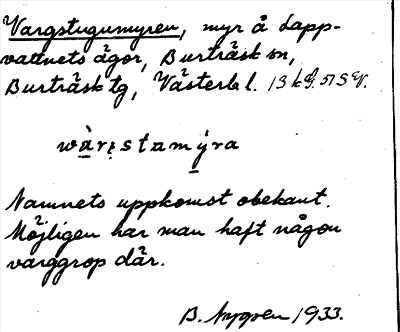 Vargstugumyren, myr å Lapp-
vattnets ägor, Burträsk sn,
Burträsk tg, Västerb l. 13 kf. 51 S
wàrịstamýra
Namnets uppkomst obekant.
Möjligen har man haft någon
varggrop där.
B. Nygren 1933.